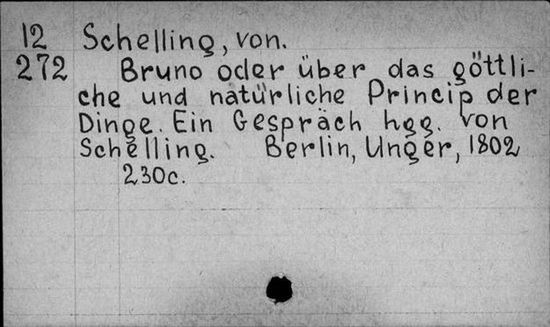 12 Schelling, von.
272 Bruno oder über das göttli-
che und natürliche Princip der
Dinge. Ein Gespräch hgg. von
Schelling. Berlin, Unger, 1802
230c.